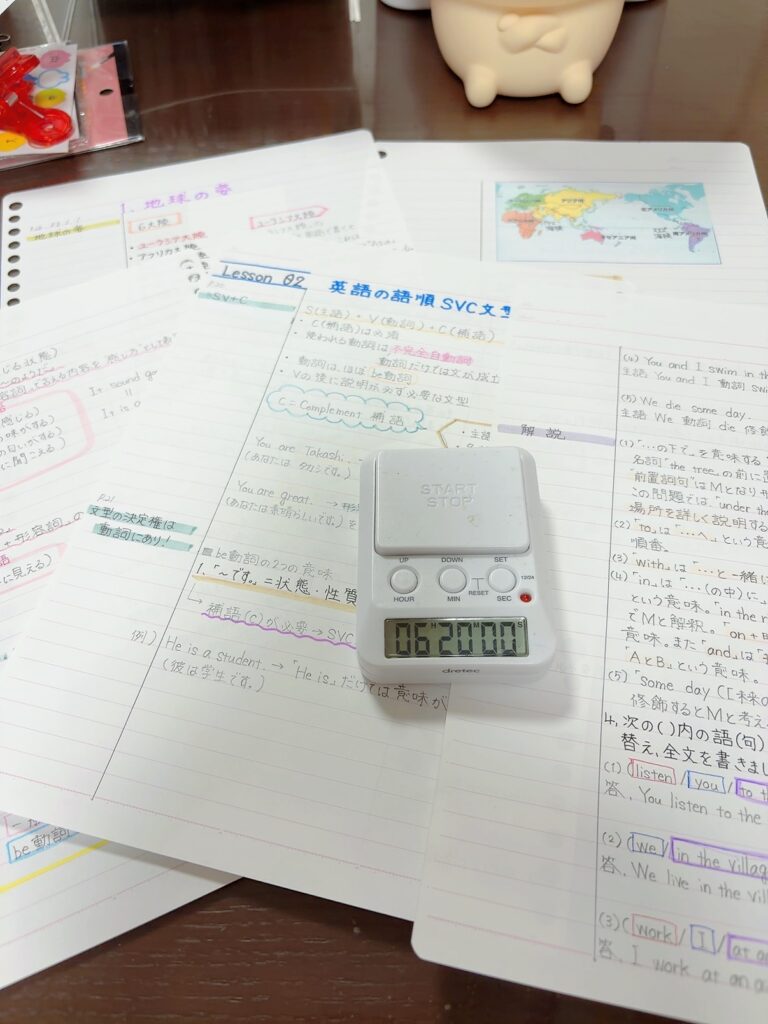 1. 地球の姿
地球の姿
6大陸
・ユーラシア大陸
・アフリカ大陸
ユーラシア大陸
アジア州
オセアニア州
北アメリカ州
南アメリカ州
Lesson 02
英語の語順 SVC文型
SV+C
S(主語)+V(動詞)+C(補語)
・C(補語)は必須
・使われる動詞は不完全自動詞
動詞だけでは文が成立
・動詞は、ほぼbe動詞
・Vの後に説明が必ず必要な文型
C = Complement 補語
・主語
You are Takashi.
(あなたは タカシです。)
You are great. → 形
(あなたは素晴らしいです。)
P.21
文型の決定権は
動詞にあり!
be動詞の2つの意味
1.「~です。」=状態・性質
補語(C)が必要→SVC
例) He is a student. →「He is」だけでは意味が
(彼は学生です。)
じる状態)
It sound
It is
感じる)
味がする)
匂いがする)
に聞こえる)
+形容詞」の
に見える)
be動詞
START
STOP
UP
DOWN
SET
HOUR
MIN
RESET
SEC
12/24
H
M
S
06 20 00
dretec
解説
(4) You and I swim in th
主語 You and I 動詞 swi
(5) We die some day.
主語 We 動詞 die 修飾
(1)「…の下で」を意味する
名詞"the tree"の前に置
"前置詞句"はMとなり形
この問題では、"under the
場所を詳しく説明する
(2)"to"は「…へ」という意
順番。
(3)"with"は「…と一緒に
(4)"in"は「…(の中)に」
という意味。"in the r
でMと解釈。"on+
意味。また"and"は「
「AとB」という意味。
(5)"some day (
修飾するとMと考え
4. 次の( )内の語(句)
替え、全文を書きまし
(1) (listen/you/to th
答. You listen to the
(2) (we/in the villag
答. We live in the vil
(3) (work/I/at a
答. I work at an a